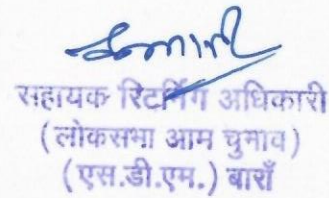 सहायक रिटर्निंग अधिकारी
(लोकसभा आम चुनाव)
(एस.डी.एम.) बाराँ